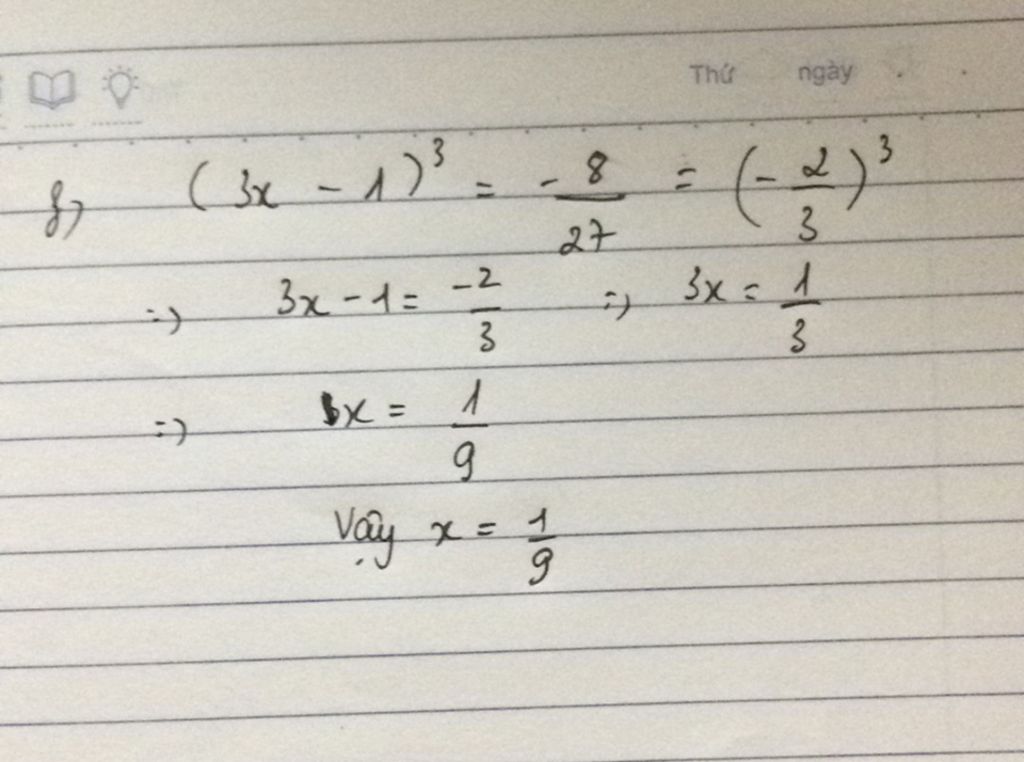 Thứ ngày
f, (3x - 1)³ = -8/27 = (-2/3)³
=> 3x - 1 = -2/3 => 3x = 1/3
=> x = 1/9
Vậy x = 1/9